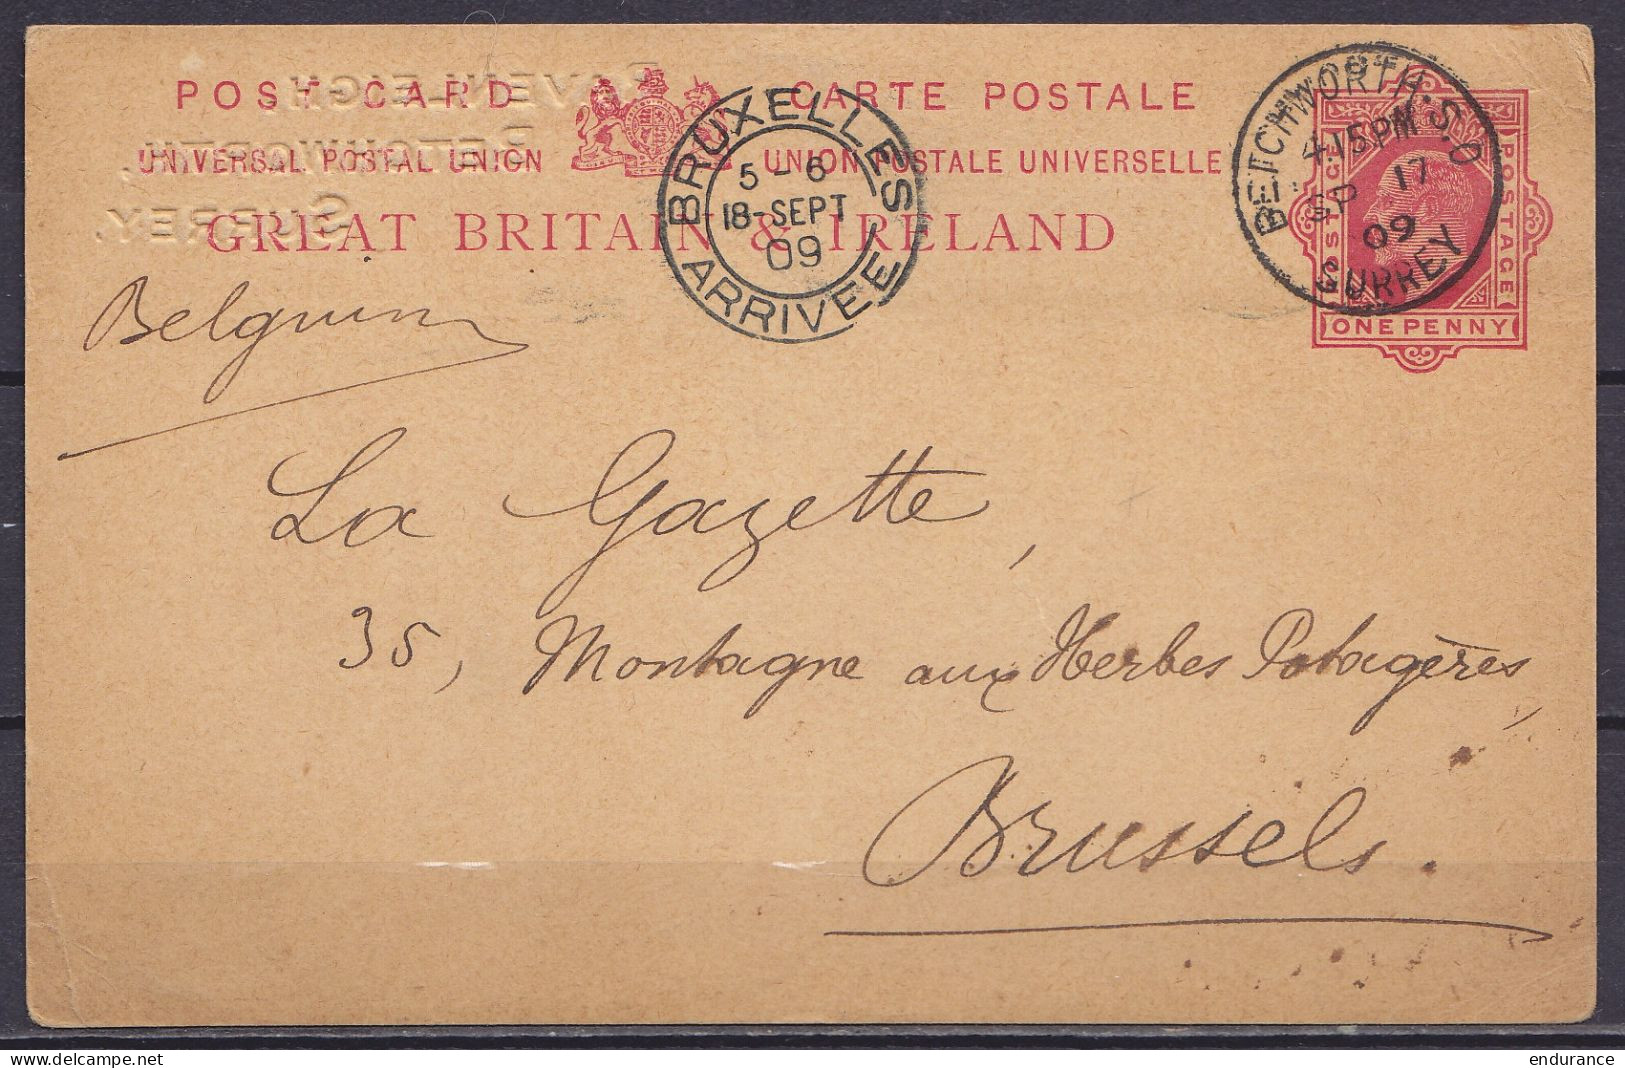 RAVENLEIGH
BETCHWORTH,
SURREY.
POST CARD CARTE POSTALE
UNIVERSAL POSTAL UNION UNION POSTALE UNIVERSELLE
GREAT BRITAIN & IRELAND
BRUXELLES
5-6
18-SEPT
09
ARRIVEE
BETCHWORTH.S.O
4.15PM
SP 17
09
SURREY
POSTAGE POSTAGE
ONE PENNY
Belgium
La Gazette,
35, Montagne aux Herbes Potagères,
Brussels.
delcampe.net
endurance